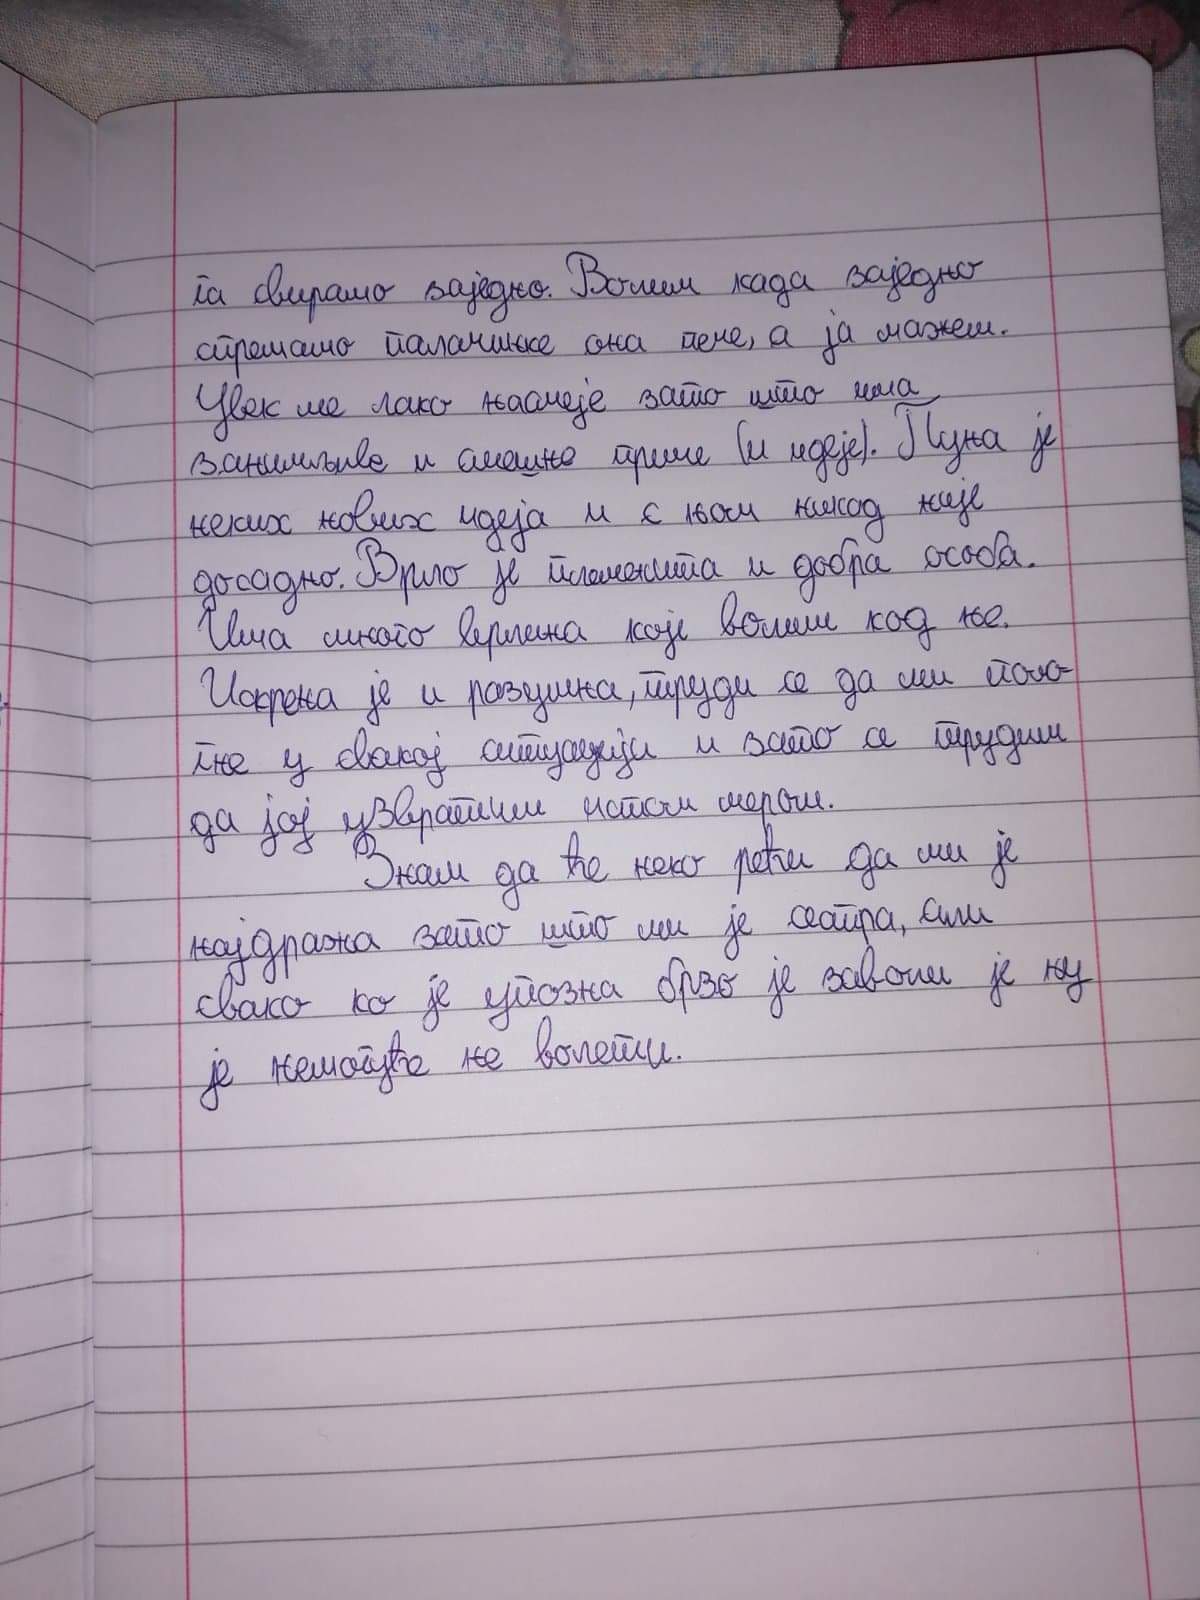 га свирамо заједно. Волим када заједно
спремамо палачинке она пече, а ја мажем.
Увек ме лако насмеје зато што има
занимљиве и смешне приче (и идеје). Пуна је
неких нових идеја и с њом никад није
досадно. Врло је племенита и добра особа.
Има много врлина које волим код ње.
Искрена је и разумна, труди се да ми помо-
гне у свакој ситуацији и зато се трудим
да јој узвратим истом мером.
Знам да ће неко рећи да ми је
најдража зато што ми је сестра, али
свако ко је упозна брзо је заволи је њу
је немогуће не волети.